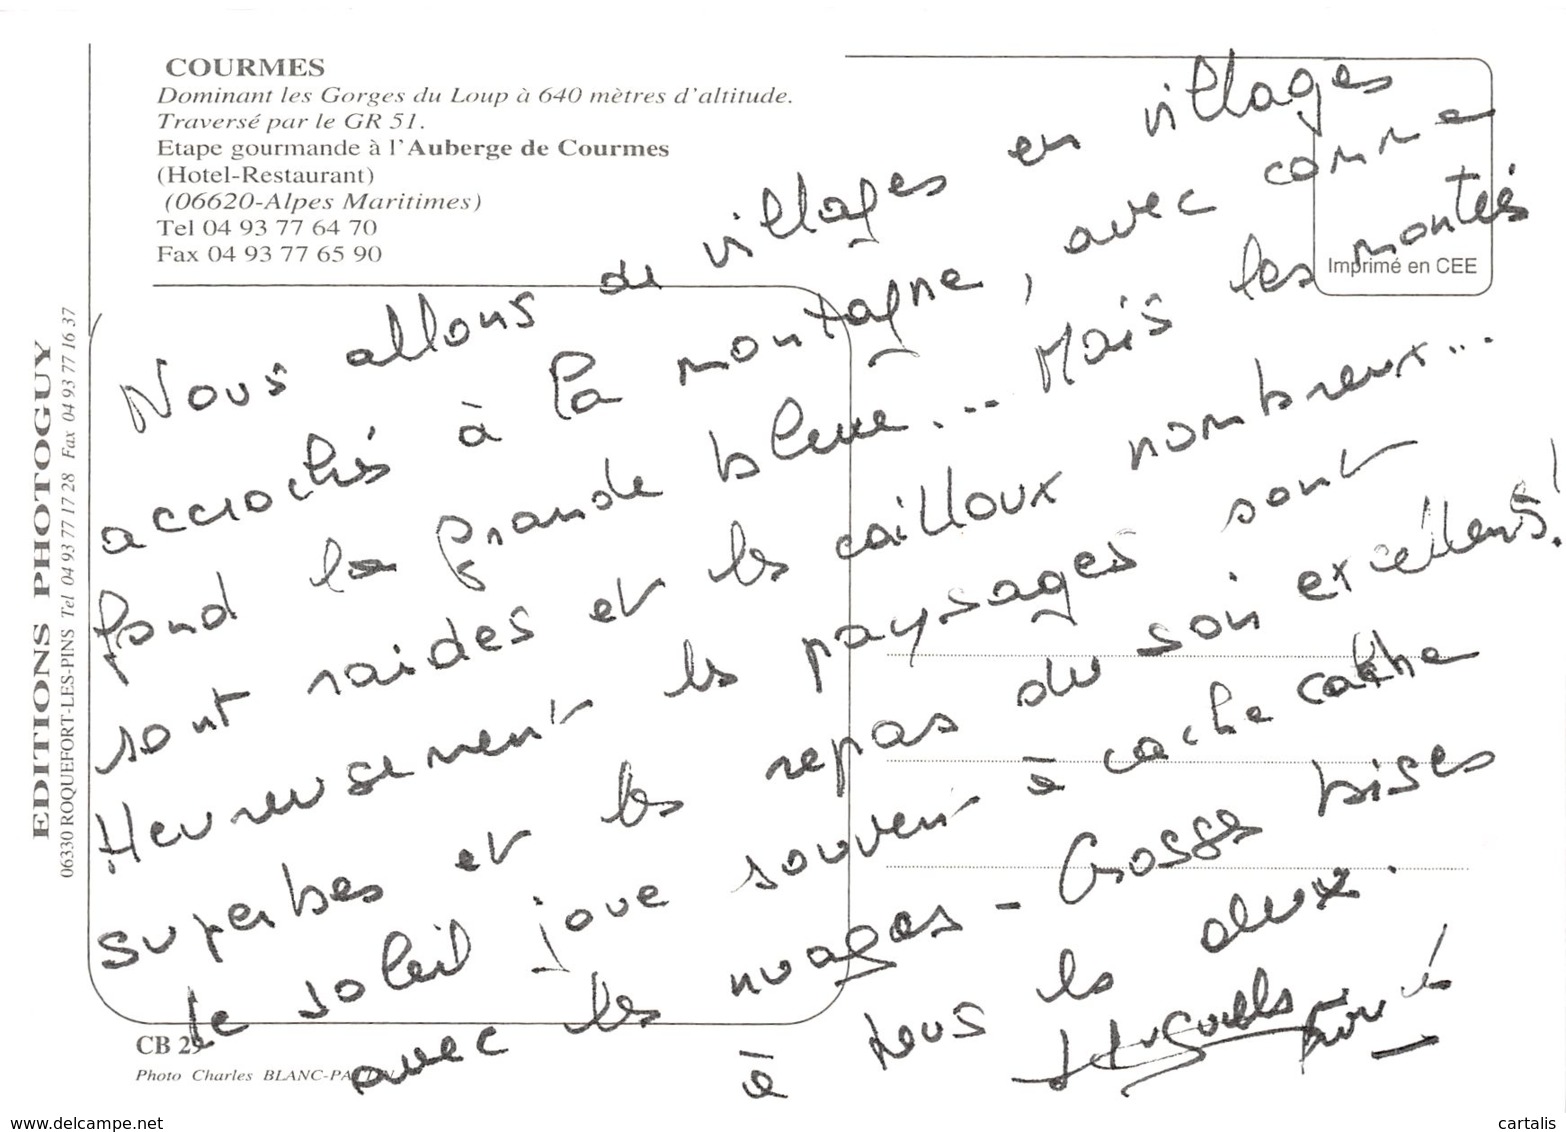 COURMES
Dominant les Gorges du Loup à 640 mètres d'altitude.
Traversé par le GR 51.
Etape gourmande à l'Auberge de Courmes
(Hotel-Restaurant)
(06620-Alpes Maritimes)
Tel 04 93 77 64 70
Fax 04 93 77 65 90
Imprimé en CEE
EDITIONS PHOTOGUY
06330 ROQUEFORT-LES-PINS Tel 04 93 77 17 28 Fax 04 93 77 16 37
Nous allons de villages en villages
accrochés à la montagne, avec comme
fond la grande bleue... Mais les montés
sont raides et les cailloux nombreux...
Heureusement les paysages sont
superbes et les repas du soir excellents!
Le soleil joue souvent à cache cache
avec les nuages - Grosses bises
à tous les deux.
CB 29
Photo Charles BLANC-PATTIN
www.delcampe.net
cartalis